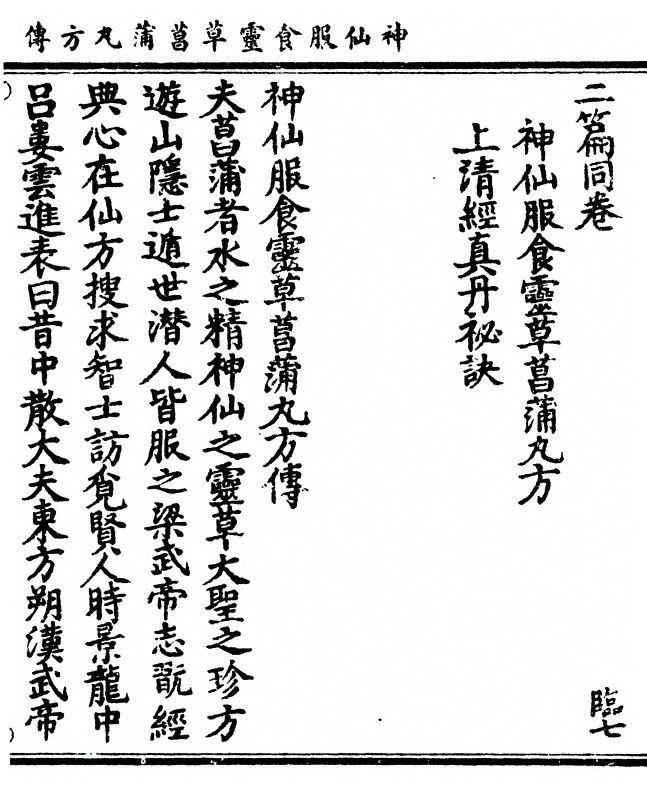 神仙服食靈草菖蒲丸方傳
二篇同卷
臨七
神仙服食靈草菖蒲丸方
上清經真丹祕訣
神仙服食靈草菖蒲丸方傳
夫菖蒲者水之精神仙之靈草大聖之珍方
遊山隱士遁世潜人皆服之梁武帝志翫經
典心在仙方搜求智士訪覓賢人時景龍中
吕婁雲進表曰昔中散大夫東方朔漢武帝